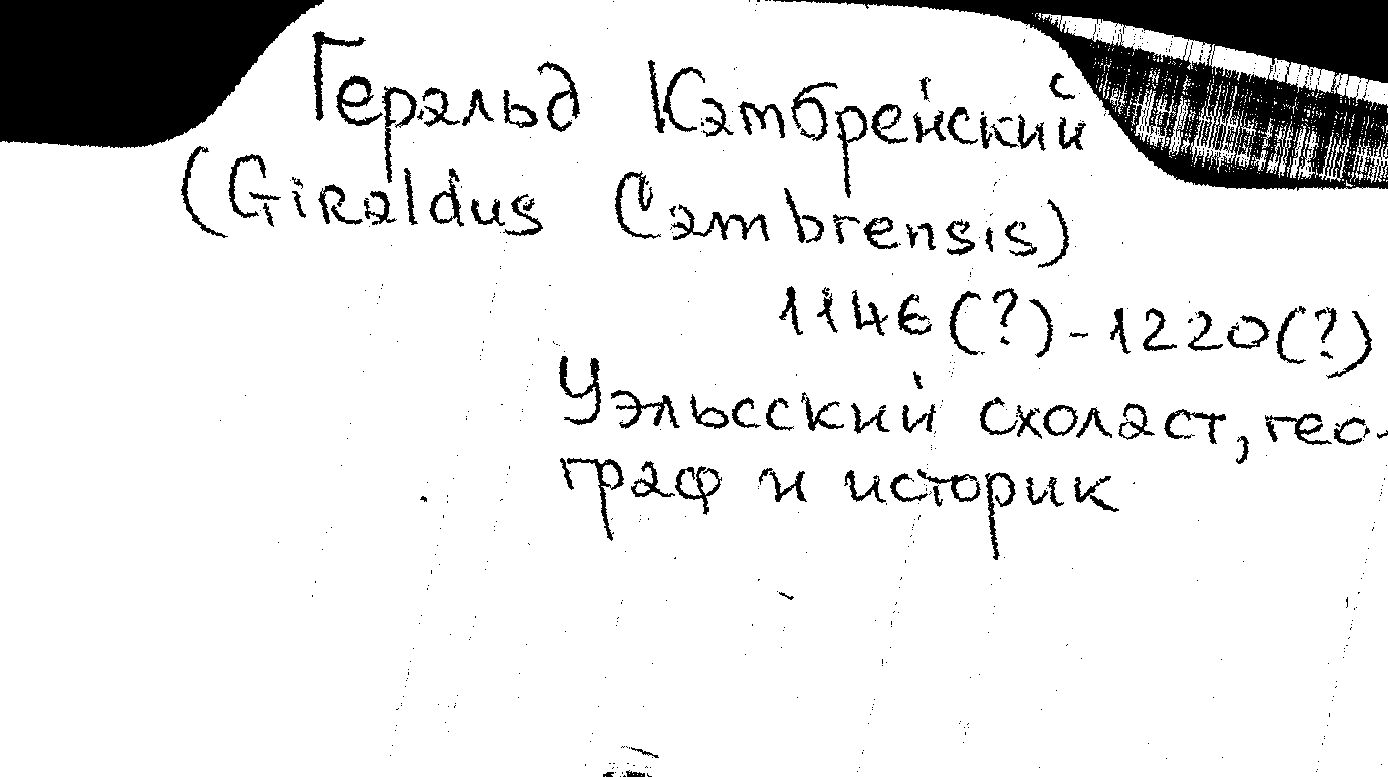 Геральд Камбрейский
(Giraldus Cambrensis)
1146(?)-1220(?)
Уэльсский схоласт, гео-
граф и историк